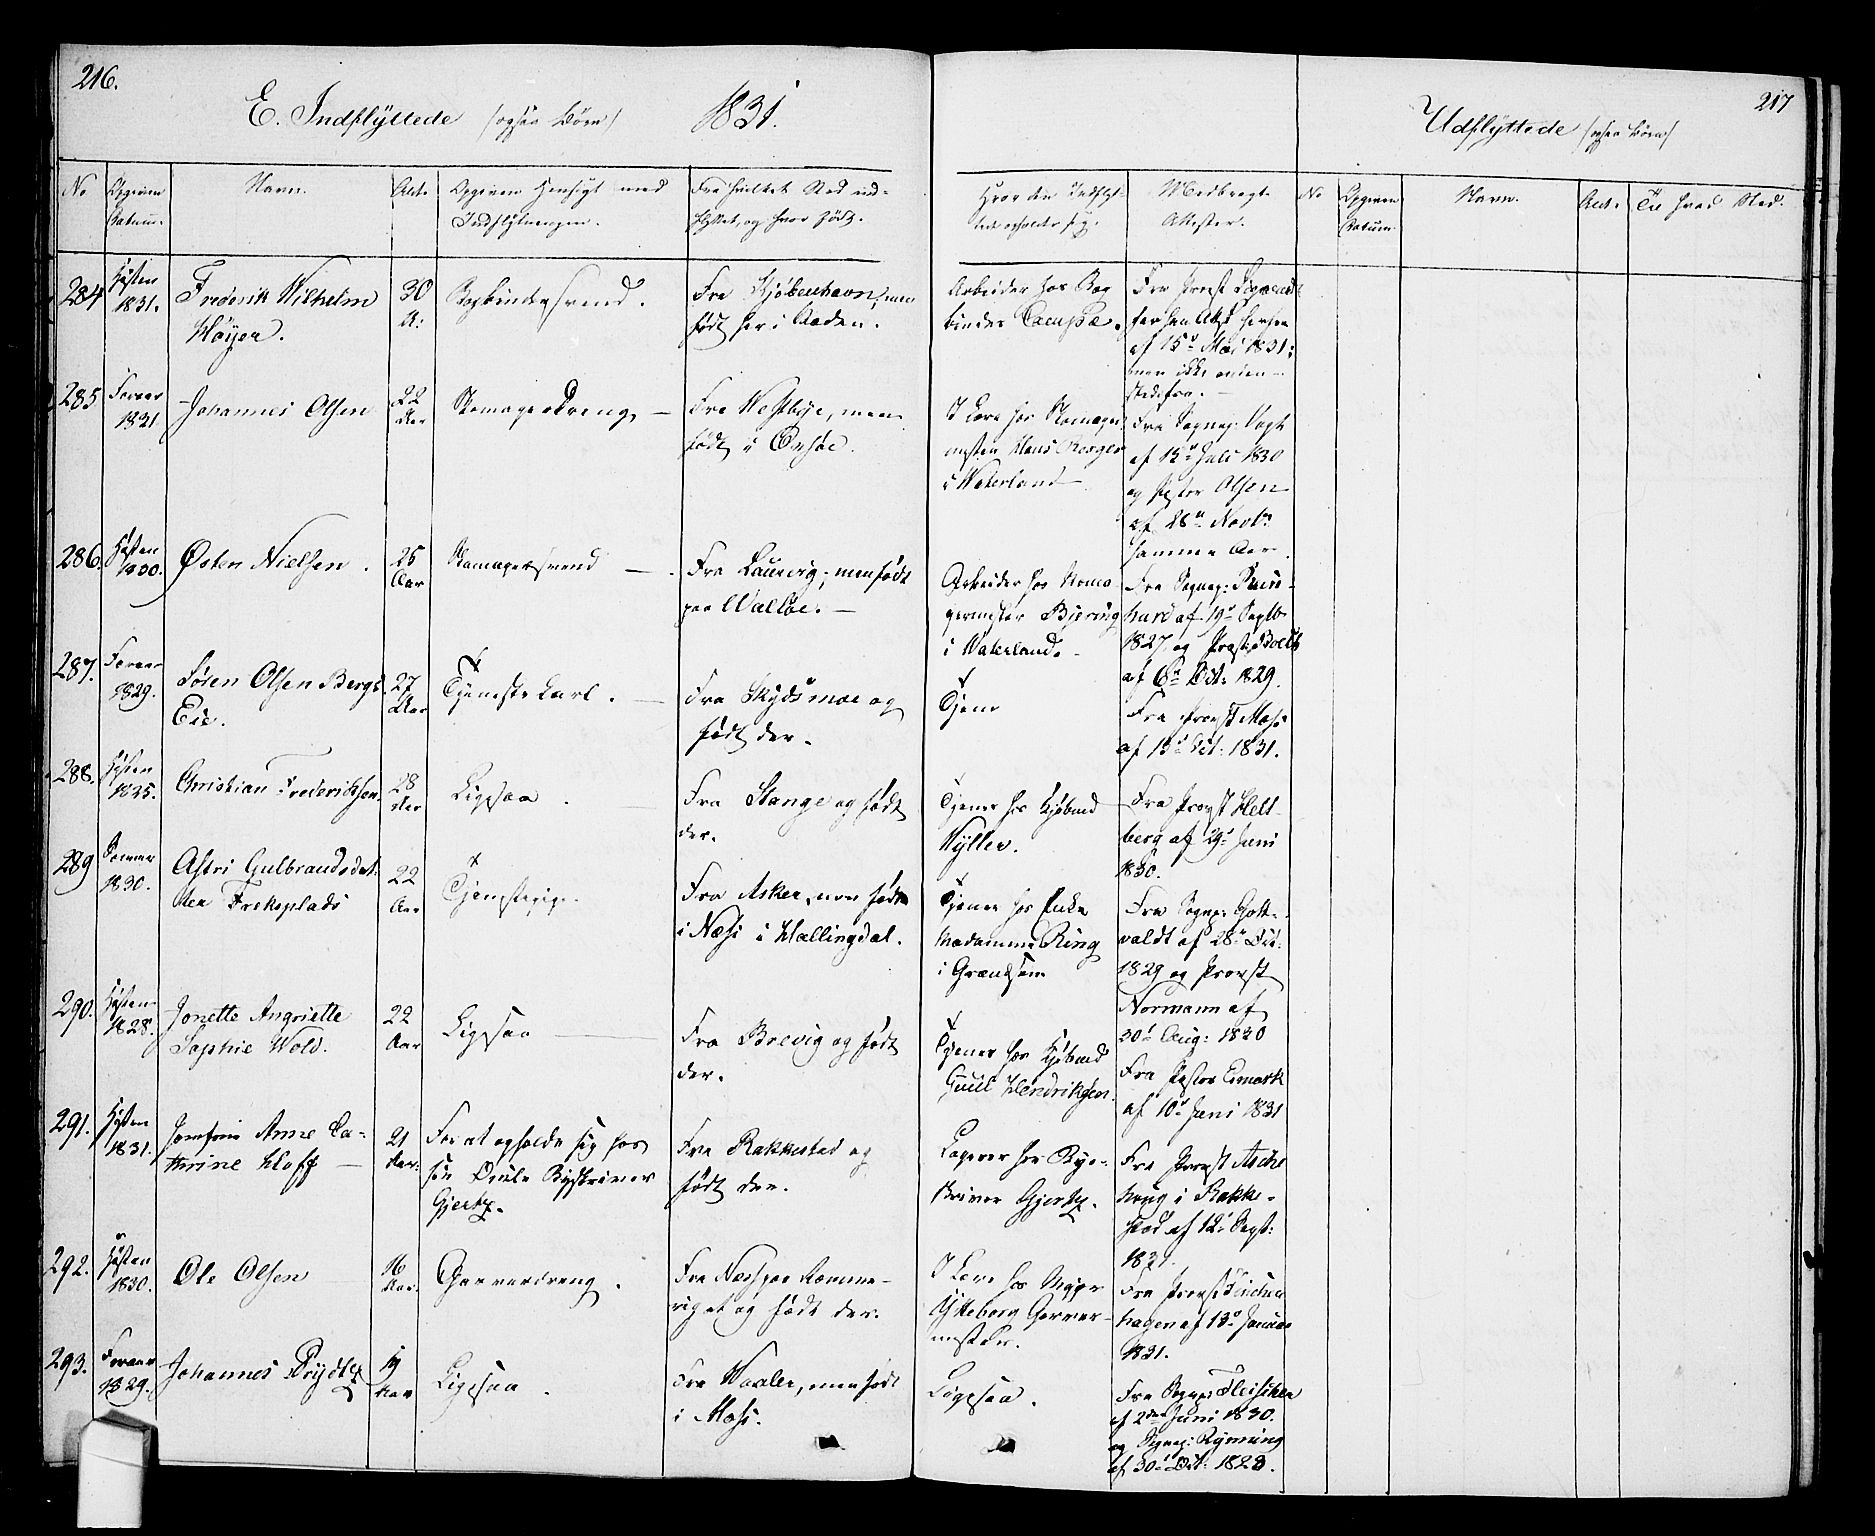 216.
E. Indflyttede /ogsaa Börn/ 1831.
No
Opgiven Datum.
Navn.
Ald.
Opgiven Hensigt med Indflytningen.
Fra hvilket Sted ind-
flyttet, og hvor født.
Hvor den Indflyt-
tede opholder sig.
Medbragte
Attester.
284
Høsten
1831.
Frederik Wilhelm
Høyer.
30
A:
Bogbindersvend.
Fra Kjøbenhavn, men
født her i Staden.
Arbeider hos Bog
binder Campe.
af 15de Mai 1831;
men ikke anden
stedsfra.
285
Foraar
1831
Johannes Olsen
22
Aar
Skomagerdreng
Fra Westbye, men
født i Onsøe.
I Lære hos Skomager
mester Hans Berger
i Waterland
Fra Sognep: Vogt
af 13de Juli 1830
og Pastor Olsen
af 28de Novbr
samme Aar.
286.
Høsten
1830.
Østen Nielsen.
25
Aar
Skomagersvend
Fra Laurvig; men født
paa Walløe.
Arbeider hos Skoma
germester Bjering
i Waterland.
Fra Sognep:
af 19de Septb
1827 og Provst
af 6te Oct: 1829.
287.
Foraar
1829.
Søren Olsen Bergs
Eie.
27
Aar
Tjenestekarl.
Fra Skydsmoe og
født der.
Tjener
Fra Provst
af 13de Oct: 1831.
288.
Høsten
1825.
Christian Frederichsen.
28
Aar
Ligesaa.
Fra Stange og født
der.
Tjener hos Kjøbmd
Myller.
Fra Provst Helt-
berg af 29de Juni
1830.
289
Sommer
1830.
Astri Gulbrandsdat-
ter Frekeplads
22
Aar
Tjenestepige.
Fra Asker, men født
i Næss i Hallingdal.
Tjener hos Enke
Madamme Ring
i Grændsen
Fra Sognep: Gott-
valdt af 28de Oct:
1829 og Provst
Normann af
30te Aug: 1830
290.
Høsten
1828.
Jonette Angriette
Sophie Wold.
22
Aar
Ligesaa
Fra Brevig og født
der.
Tjener hos Kjøbmd
Hendriksen.
Fra Pastor Esmark
af 10de Juni 1831
291.
Høsten
1831.
Jomfrue Anne Ca-
thrine Hoff
21
Aar.
For at opholde sig hos
sin Onkle Byskriver
Gjertz.
Fra Rakkestad og
født der.
Logerer hos Bye-
skriver Gjertz.
Fra Provst Asche
houg i Rakke-
stad af 12te Sept:
1831.
292.
Høsten
1830.
Ole Olsen
16
Aar.
Garverdreng.
Fra Næs paa Romme-
riget og født der.
I Lære hos
Ytteborg Garver-
mester.
Fra Provst
hagen af 13de Januar
1831.
293.
Foraar
1829.
Johannes Prydtz
19
Aar
Ligesaa.
Fra Waaler, men født
i Moss.
Ligesaa.
Fra Sognep: Fleischer
af 2den Juni 1830.
og Sognep: Rynning
af 30te Oct: 1828.
217
Udflyttede /ogsaa Börn/
No
Opgiven
Datum.
Navn.
Ald.
Til hvad Sted.